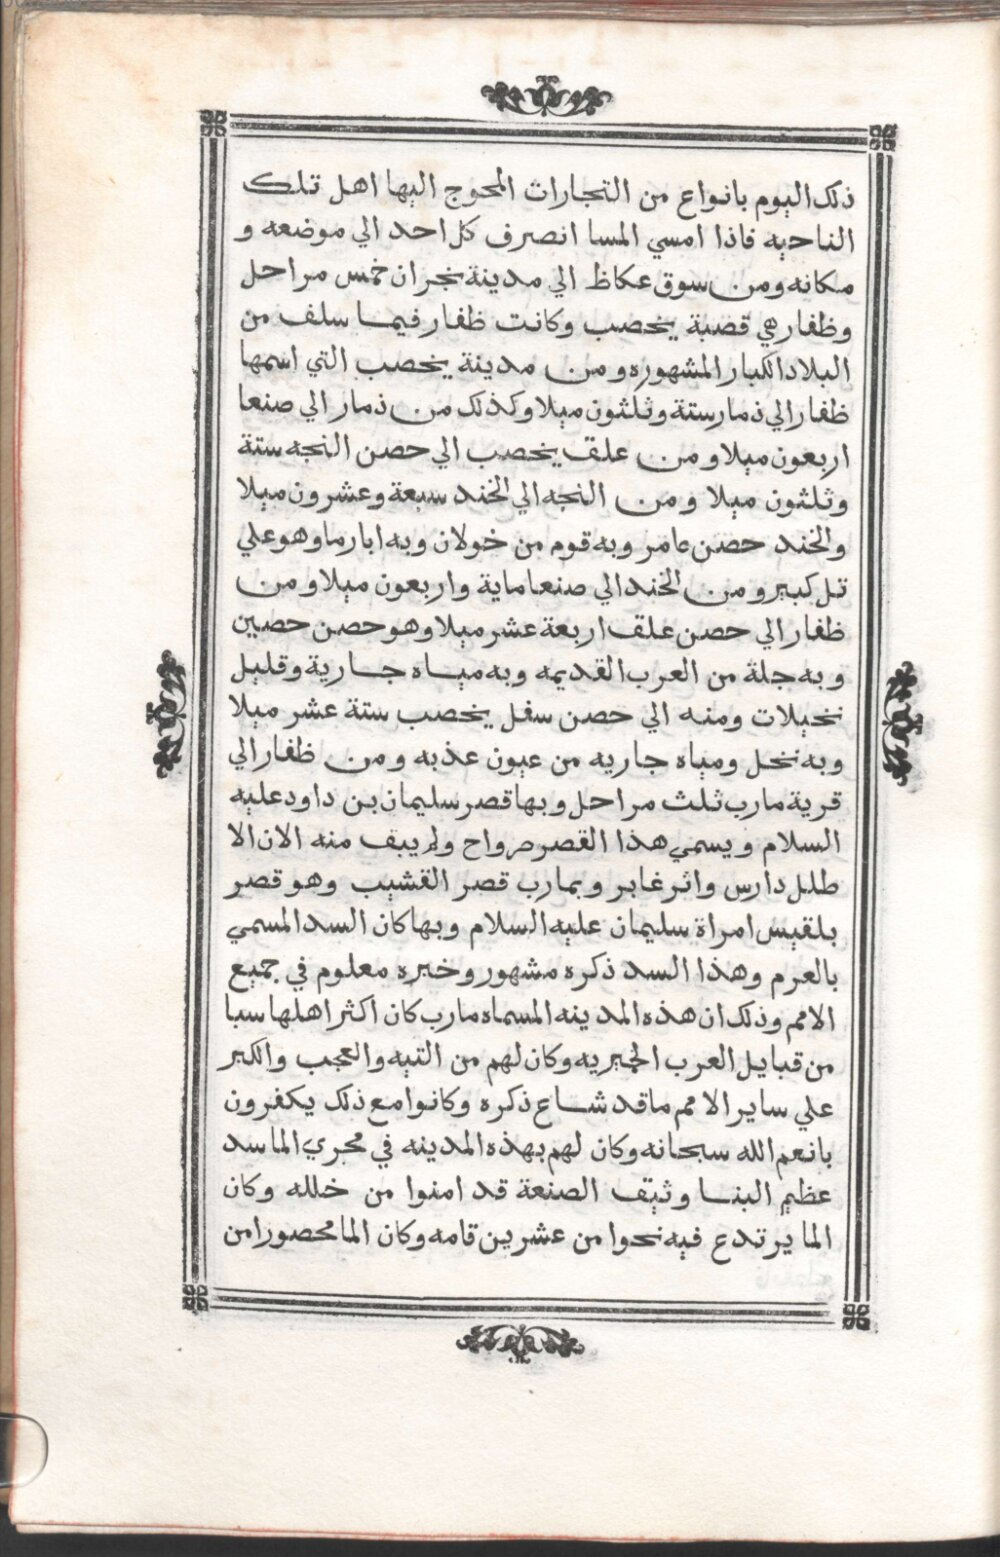 ذلك اليوم بانواع من التجارات المحوج اليها اهل تلك
الناحيه فاذا امسي المسا انصرف كل احد الي موضعه و
مكانه ومن سوق عكاظ الي مدينة نجران خمس مراحل
وظفار هي قصبة يحصب وكانت ظفار فيما سلف من
البلاد الكبار المشهوره ومن مدينة يحصب التي اسمها
ظفار الي ذمار ستة وثلثون ميلا وكذلك من ذمار الي صنعا
اربعون ميلا ومن علقـ يحصب الي حصن النجه ستة
وثلثون ميلا ومن النجه الي الخند سبعة وعشرون ميلا
والخند حصن عامر وبه قوم من خولان وبه ابار ما وهو علي
تل كبير ومن الخند الي صنعا ماية واربعون ميلا ومن
ظفار الي حصن علقـ اربعة عشر ميلا وهو حصن حصين
وبه جلة من العرب القديمه وبه مياه جارية وقليل
نخيلات ومنه الي حصن سفل يخصب ستة عشر ميلا
وبه نخل ومياه جاريه من عيون عذبه ومن ظفار الي
قرية مارب ثلث مراحل وبها قصر سليمان بن داود عليه
السلام ويسمي هذا القصر صرواح ولم يبق منه الان الا
طلل دارس واثر غابر وبمارب قصر القشيب وهو قصر
بلقيس امراة سليمان عليه السلام وبها كان السد المسمي
بالعرم وهذا السد ذكره مشهور وخبره معلوم في جميع
الامم وذلك ان هذه المدينه المسماه مارب كان اكثر اهلها سبا
من قبايل العرب الحميريه وكان لهم من التيه والعجب والكبر
علي ساير الامم ما قد شاع ذكره وكانوا مع ذلك يكفرون
بانعم الله سبحانه وكان لهم بهذه المدينه في مجري الما سد
عظيم البنا وثيق الصنعة قد امنوا من خلله وكان
الما يرتدع فيه نحوا من عشرين قامه وكان الما محصورا من